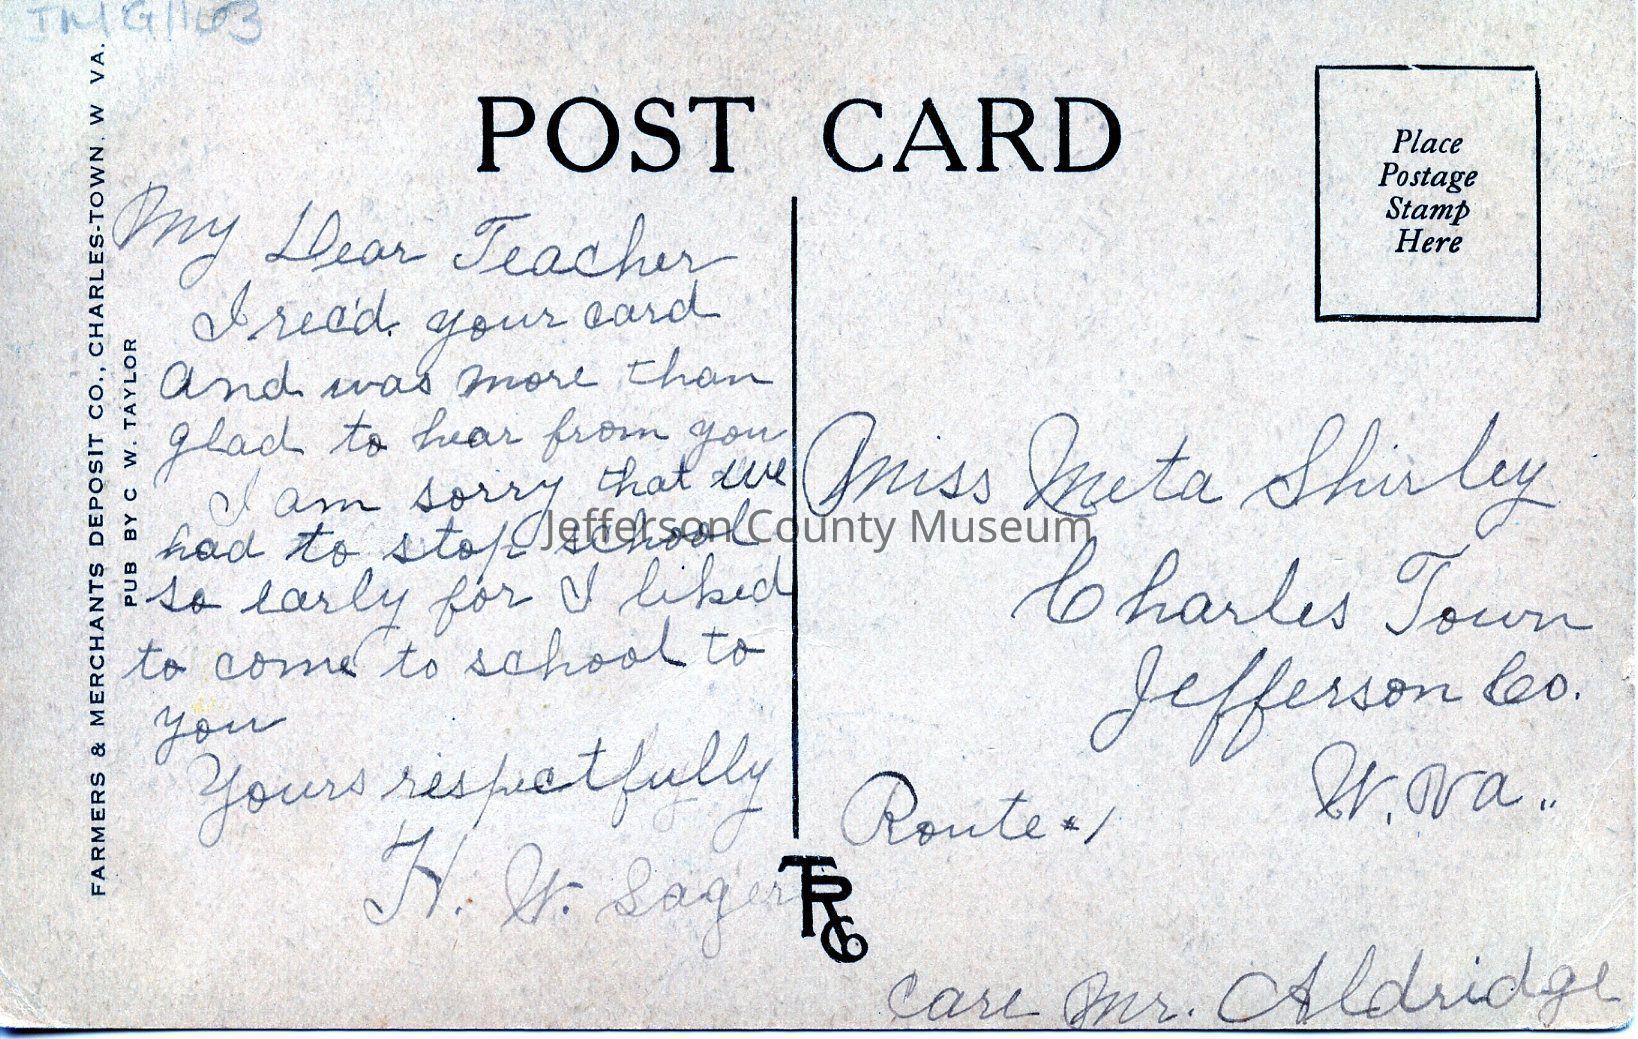 JMG1163
POST CARD
Place
Postage
Stamp
Here
FARMERS & MERCHANTS DEPOSIT CO., CHARLES-TOWN. W VA.
PUB BY C W. TAYLOR
My Dear Teacher
I rec'd. your card
and was more than
glad to hear from you
I am sorry that we
had to stop school
so early for I liked
to come to school to
you
Yours respectfully
H. W. Sager
Miss Meta Shirley
Charles Town
Jefferson Co.
W. Va..
Route #1
care Mr. Aldridge
TRCo
Jefferson County Museum